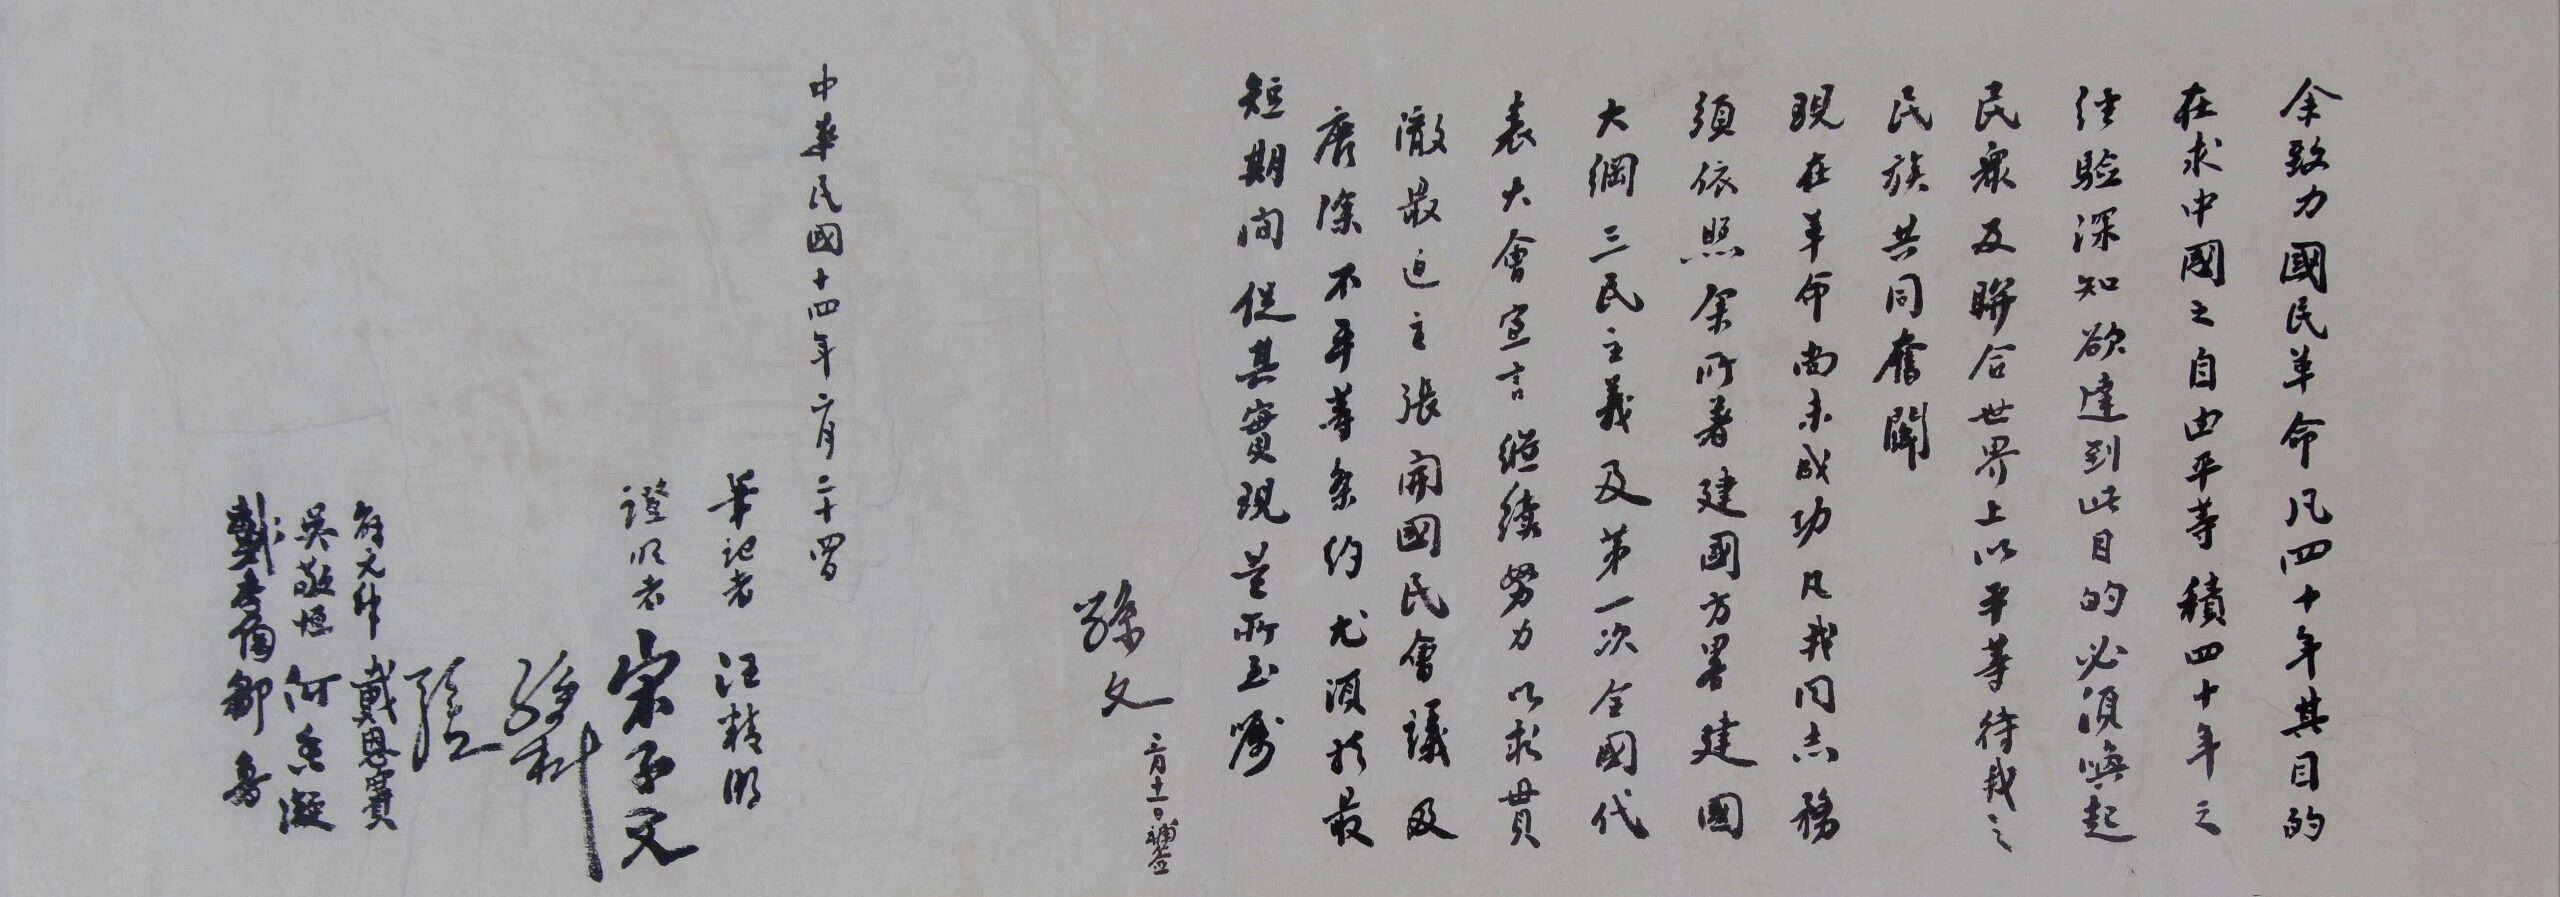 余致力國民革命凡四十年其目的
在求中國之自由平等積四十年之
经驗深知欲達到此目的必須喚起
民眾及聯合世界上以平等待我之
民族共同奮鬪
現在革命尚未成功凡我同志務
須依照余所著建國方畧建國
大綱三民主義及第一次全國代
表大會宣言繼續努力以求貫
澈最近主張開國民會議及
廢除不平等条約尤須於最
短期间促其實現是所至嘱
孫文 三月十一日補簽
中華民國十四年二月二十四日
筆記者 汪精衛
證明者 宋子文
孫科
孔
邵元冲 戴恩賽
吳敬恒 何香凝
戴季陶 鄒魯